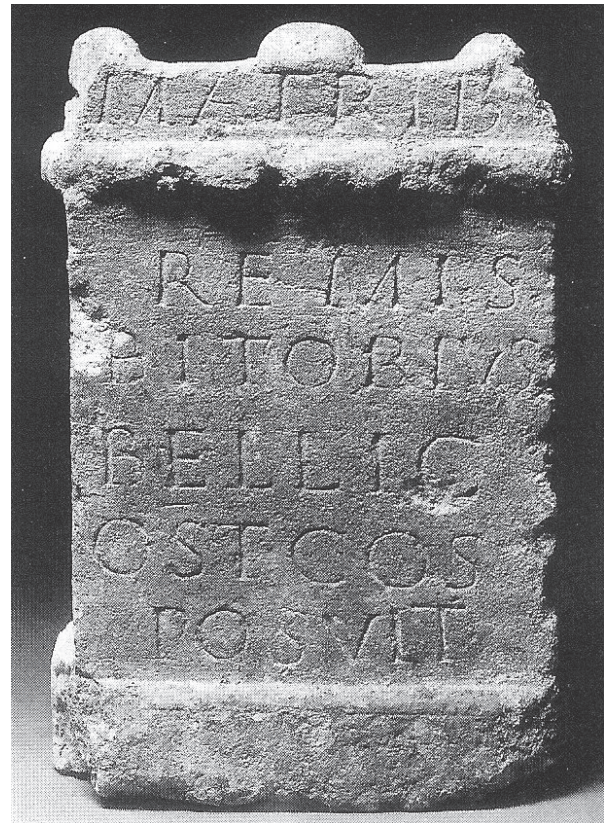 MATRIB
REMIS
BITOBIO
BELLIC
OSTCOS
POSVIT